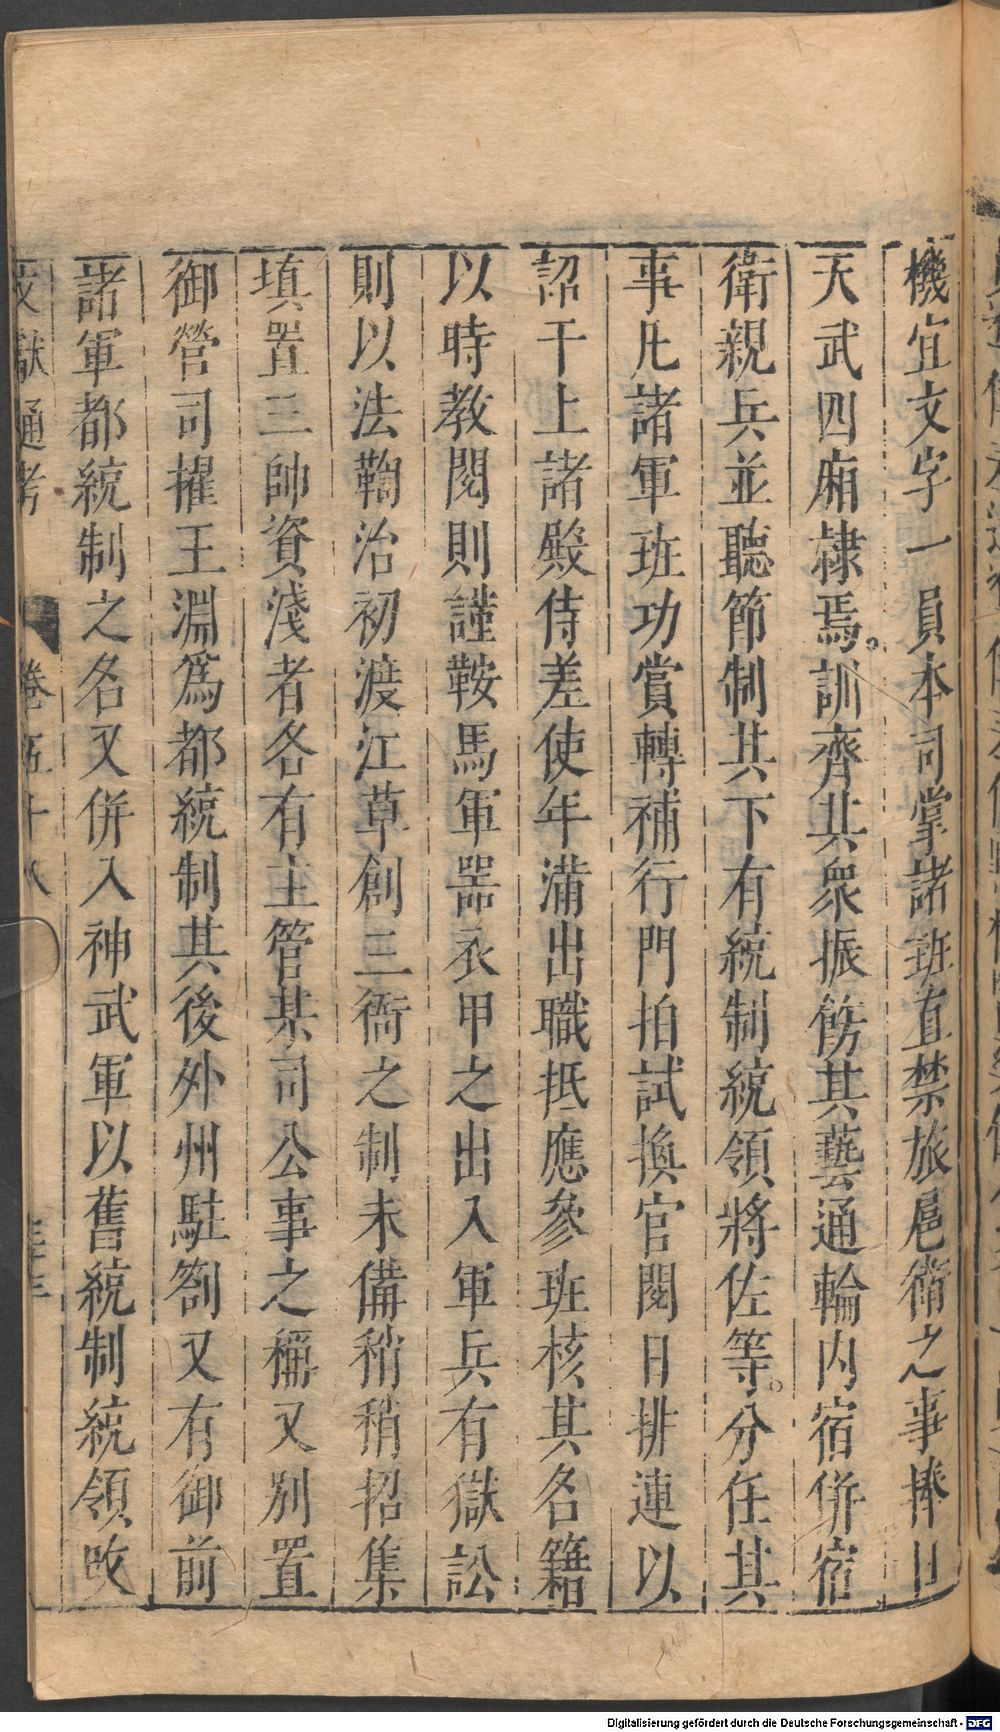 機宜文字一員本司掌諸班直禁旅扈衛之事捧日
天武四廂隷焉。訓齊其衆振飭其藝通輪内宿併宿
衛親兵並聽節制其下有統制統領將佐等。分任其
事凡諸軍班功賞轉補行門拍試換官閱日排連以
詔于上諸殿侍差使年滿出職抵應參班核其名籍
以時教閱則謹鞍馬軍器衣甲之出入軍兵有獄訟
則以法鞫治初渡江草創三衙之制未備稍稍招集
填置三帥資淺者各有主管某司公事之稱又别置
御營司擢王淵爲都統制其後外州駐劄又有御前
諸軍都統制之名又併入神武軍以舊統制統領改
文獻通考 卷五十八
Digitalisierung gefördert durch die Deutsche Forschungsgemeinschaft - DFG